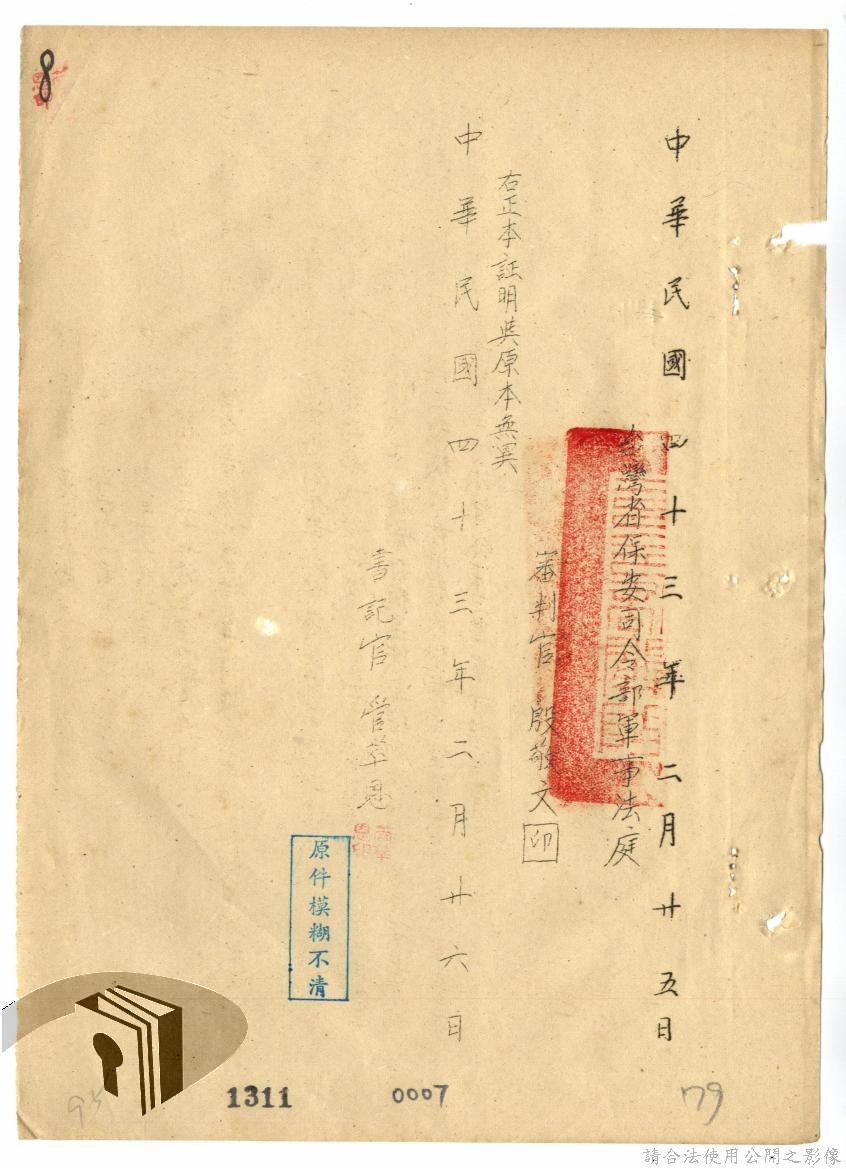 中華民國四十三年二月廿五日
台灣省保安司令部軍事法庭
審判官 殷敬文 印
右正本証明與原本無異
中華民國四十三年二月廿六日
書記官 管萃恩
原件模糊不清
8
1311
0007
79
95
請合法使用公開之影像